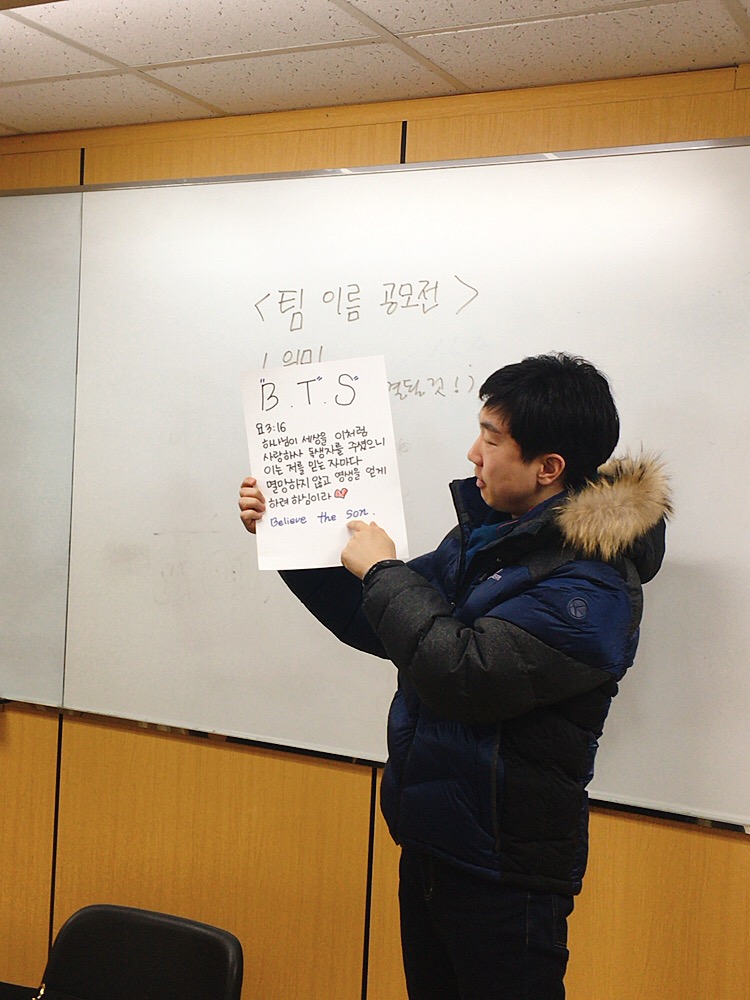 <팀 이름 공모전>
1 의미
결될 것!)
"B.T.S"
요3:16
하나님이 세상을 이처럼
사랑하사 독생자를 주셨으니
이는 저를 믿는 자마다
멸망하지 않고 영생을 얻게
하려 하심이라
Believe the son.